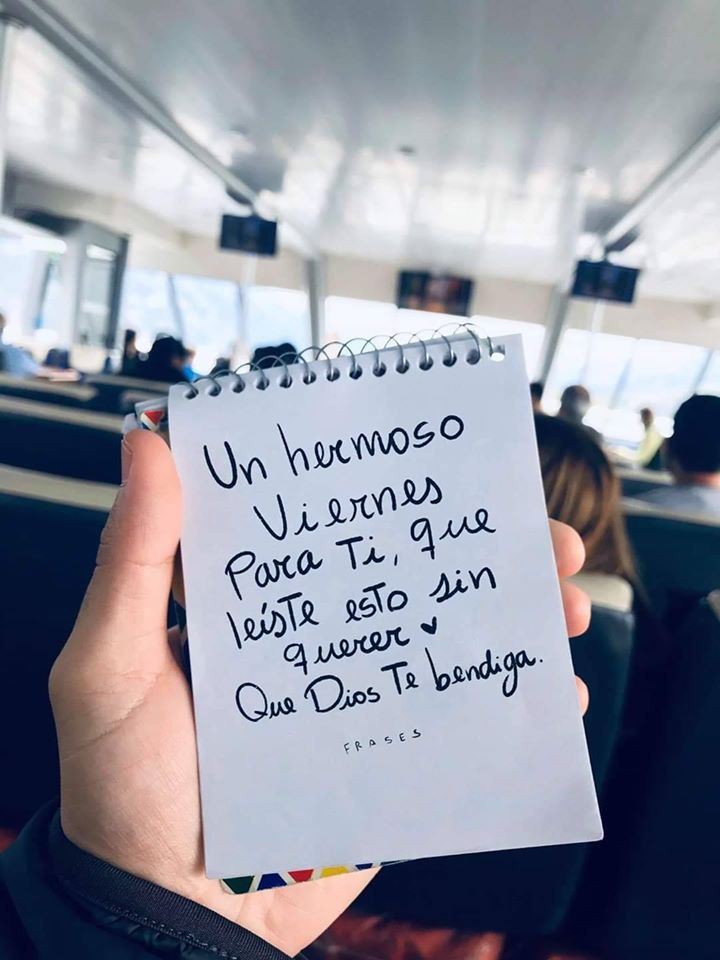 Un hermoso
Viernes
Para Ti, que
leíste esto sin
querer ♥
Que Dios Te bendiga.
FRASES